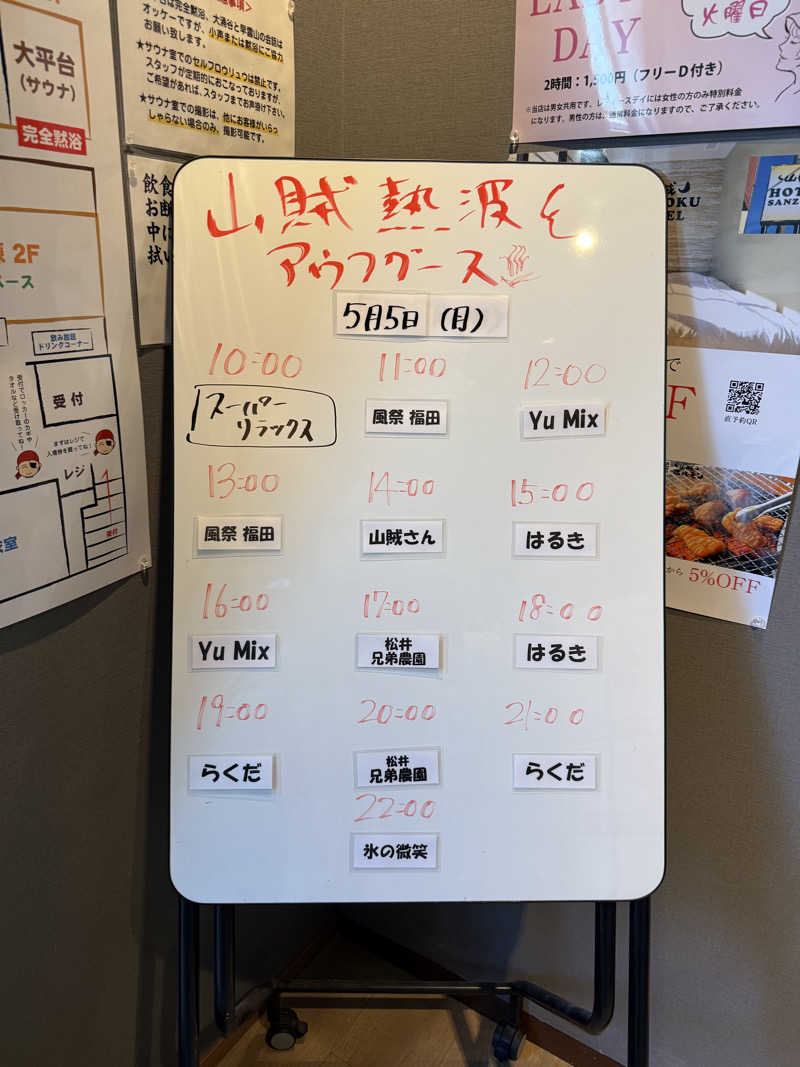 大平台
(サウナ)
完全黙浴
2F
ース
飲み放題
ドリンクコーナー
受付でロッカーのカギや
タオルなど受け取ってね!
受付
まずはレジで
入場券を買ってね!
レジ
受付
は完全黙浴、大涌谷と早雲山の会話は
オッケーですが、小声または黙浴にご協力
お願い致します。
★サウナ室でのセルフロウリュウは禁止です。
スタッフが定期的におこなっておりますが、
ご希望があれば、スタッフまでお声掛け下さい。
★サウナ室での撮影は、他にお客様がいらっ
しゃらない場合のみ、撮影可能です。
飲食
お断
中に
拭い
火曜日
DAY
2時間：1,500円（フリーD付き）
※当店は男女共用です。レディースデイには女性の方のみ特別料金
になります。男性の方は、通常料金になりますので、ご了承ください。
HOT
SANZ
OKU
EL
で
F
直予約QR
から 5%OFF
山賊熱波&
アウフグース
5月5日 (月)
10:00 11:00 12:00
スーパー
リラックス
風祭 福田
Yu Mix
13:00 14:00 15:00
風祭 福田
山賊さん
はるき
16:00 17:00 18:00
Yu Mix
松井
兄弟農園
はるき
19:00 20:00 21:00
らくだ
松井
兄弟農園
らくだ
22:00
氷の微笑